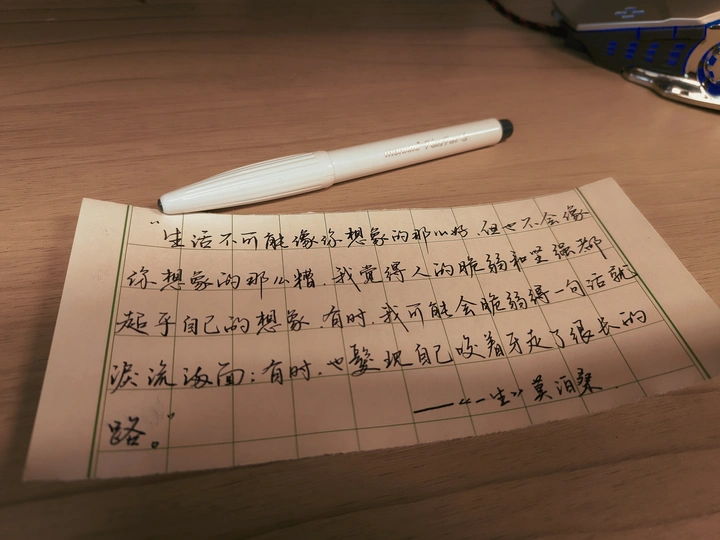 “生活不可能像你想象的那么好，但也不会像
你想象的那么糟。我觉得人的脆弱和坚强都
起乎自己的想象。有时，我可能会脆弱得一句话就
泪流满面；有时，也髮现自己咬着牙走了很长的
路。”
——《一生》莫泊桑.